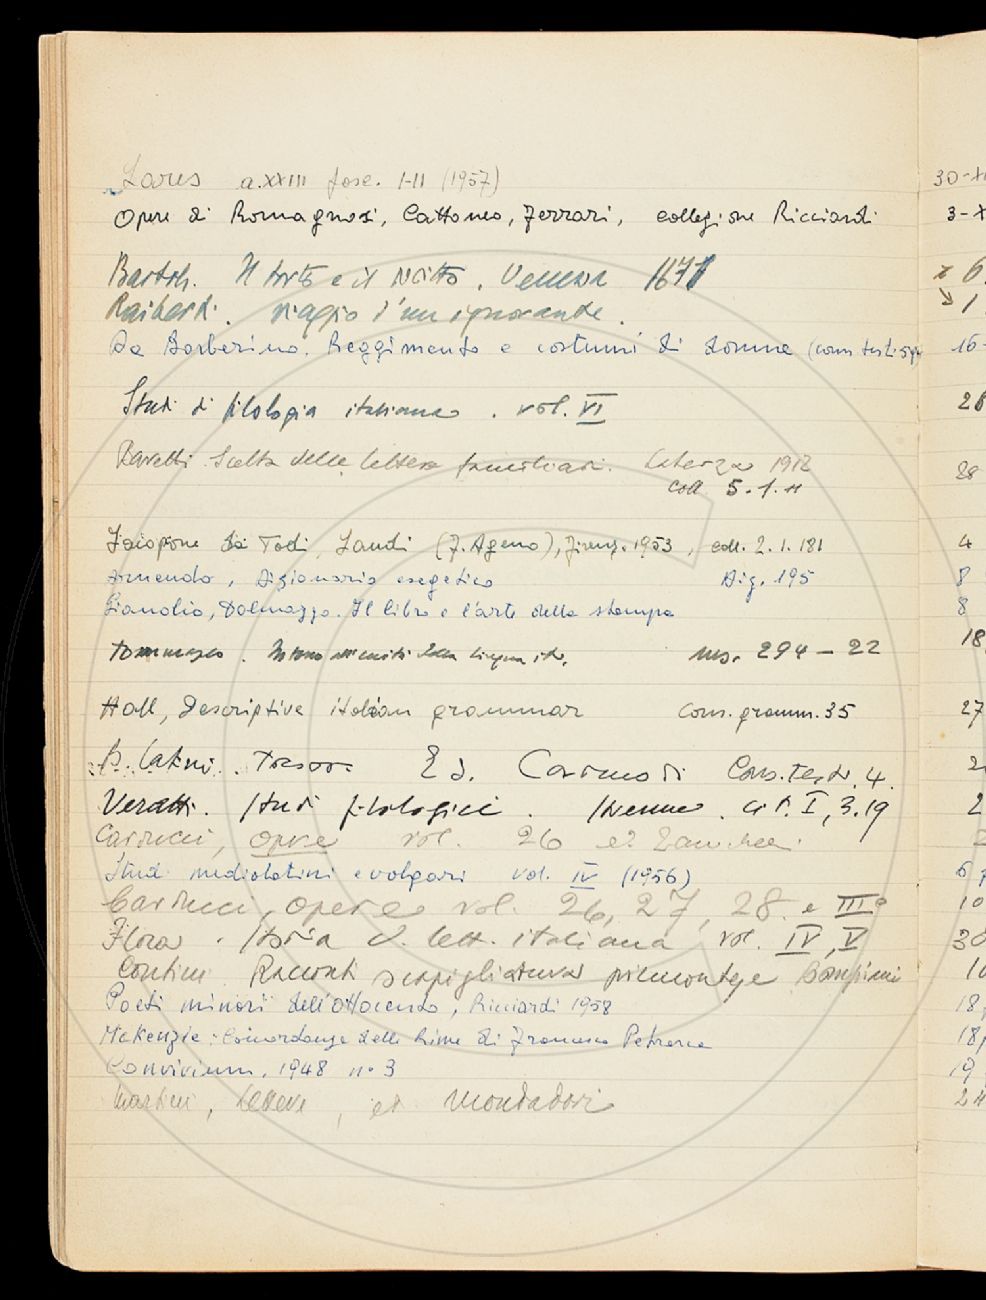 Lares a. XXIII fasc. I-II (1957) 30-XI
Opere di Romagnosi, Cattaneo, Ferrari, collezione Ricciardi 3-X
Bartoli. Il torto e il diritto. Venezia 1671 6
Raiberti. viaggio d'un ignorante. 1
Da Barberino. Reggimento e costumi di donna (cons. testi 16-
Studi di filologia italiana. vol. VI 28
Baretti. Scelta delle lettere familiari. Laterza 1912 28
coll. 5.1.11
Iacopone da Todi, Laudi (F. Ageno), Firenze. 1953, coll. 2.1.181 4
dizionario esegetico Diz. 195 8
Gianolio, Dalmazzo. Il libro e l'arte della stampa 8
Tommaseo. della lingua it. ms. 294 - 22 18
Hall, Descriptive italian grammar Cons. gramm. 35 27
B. Latini. Tresor Ed. Carmodi Cons. Testi. 4. 2
Veratti. Studi filologici. Strenna. I, 3.19 2
Carducci, opere vol. 26 ed. Zanichelli. 2
Studi mediolatini e volgari vol. IV (1956) 6
Carducci, opere vol. 26, 27, 28 e III° 10
Flora. Storia d. lett. italiana vol. IV, V 30
Contini Racconti scapigliatura piemontese Bompiani 10
Poeti minori dell'Ottocento, Ricciardi 1958 18,
McKenzie: Concordanze delle Rime di Francesco Petrarca 18,
Convivium, 1948 n° 3 19
Martini, Lettere, ed Mondadori 24